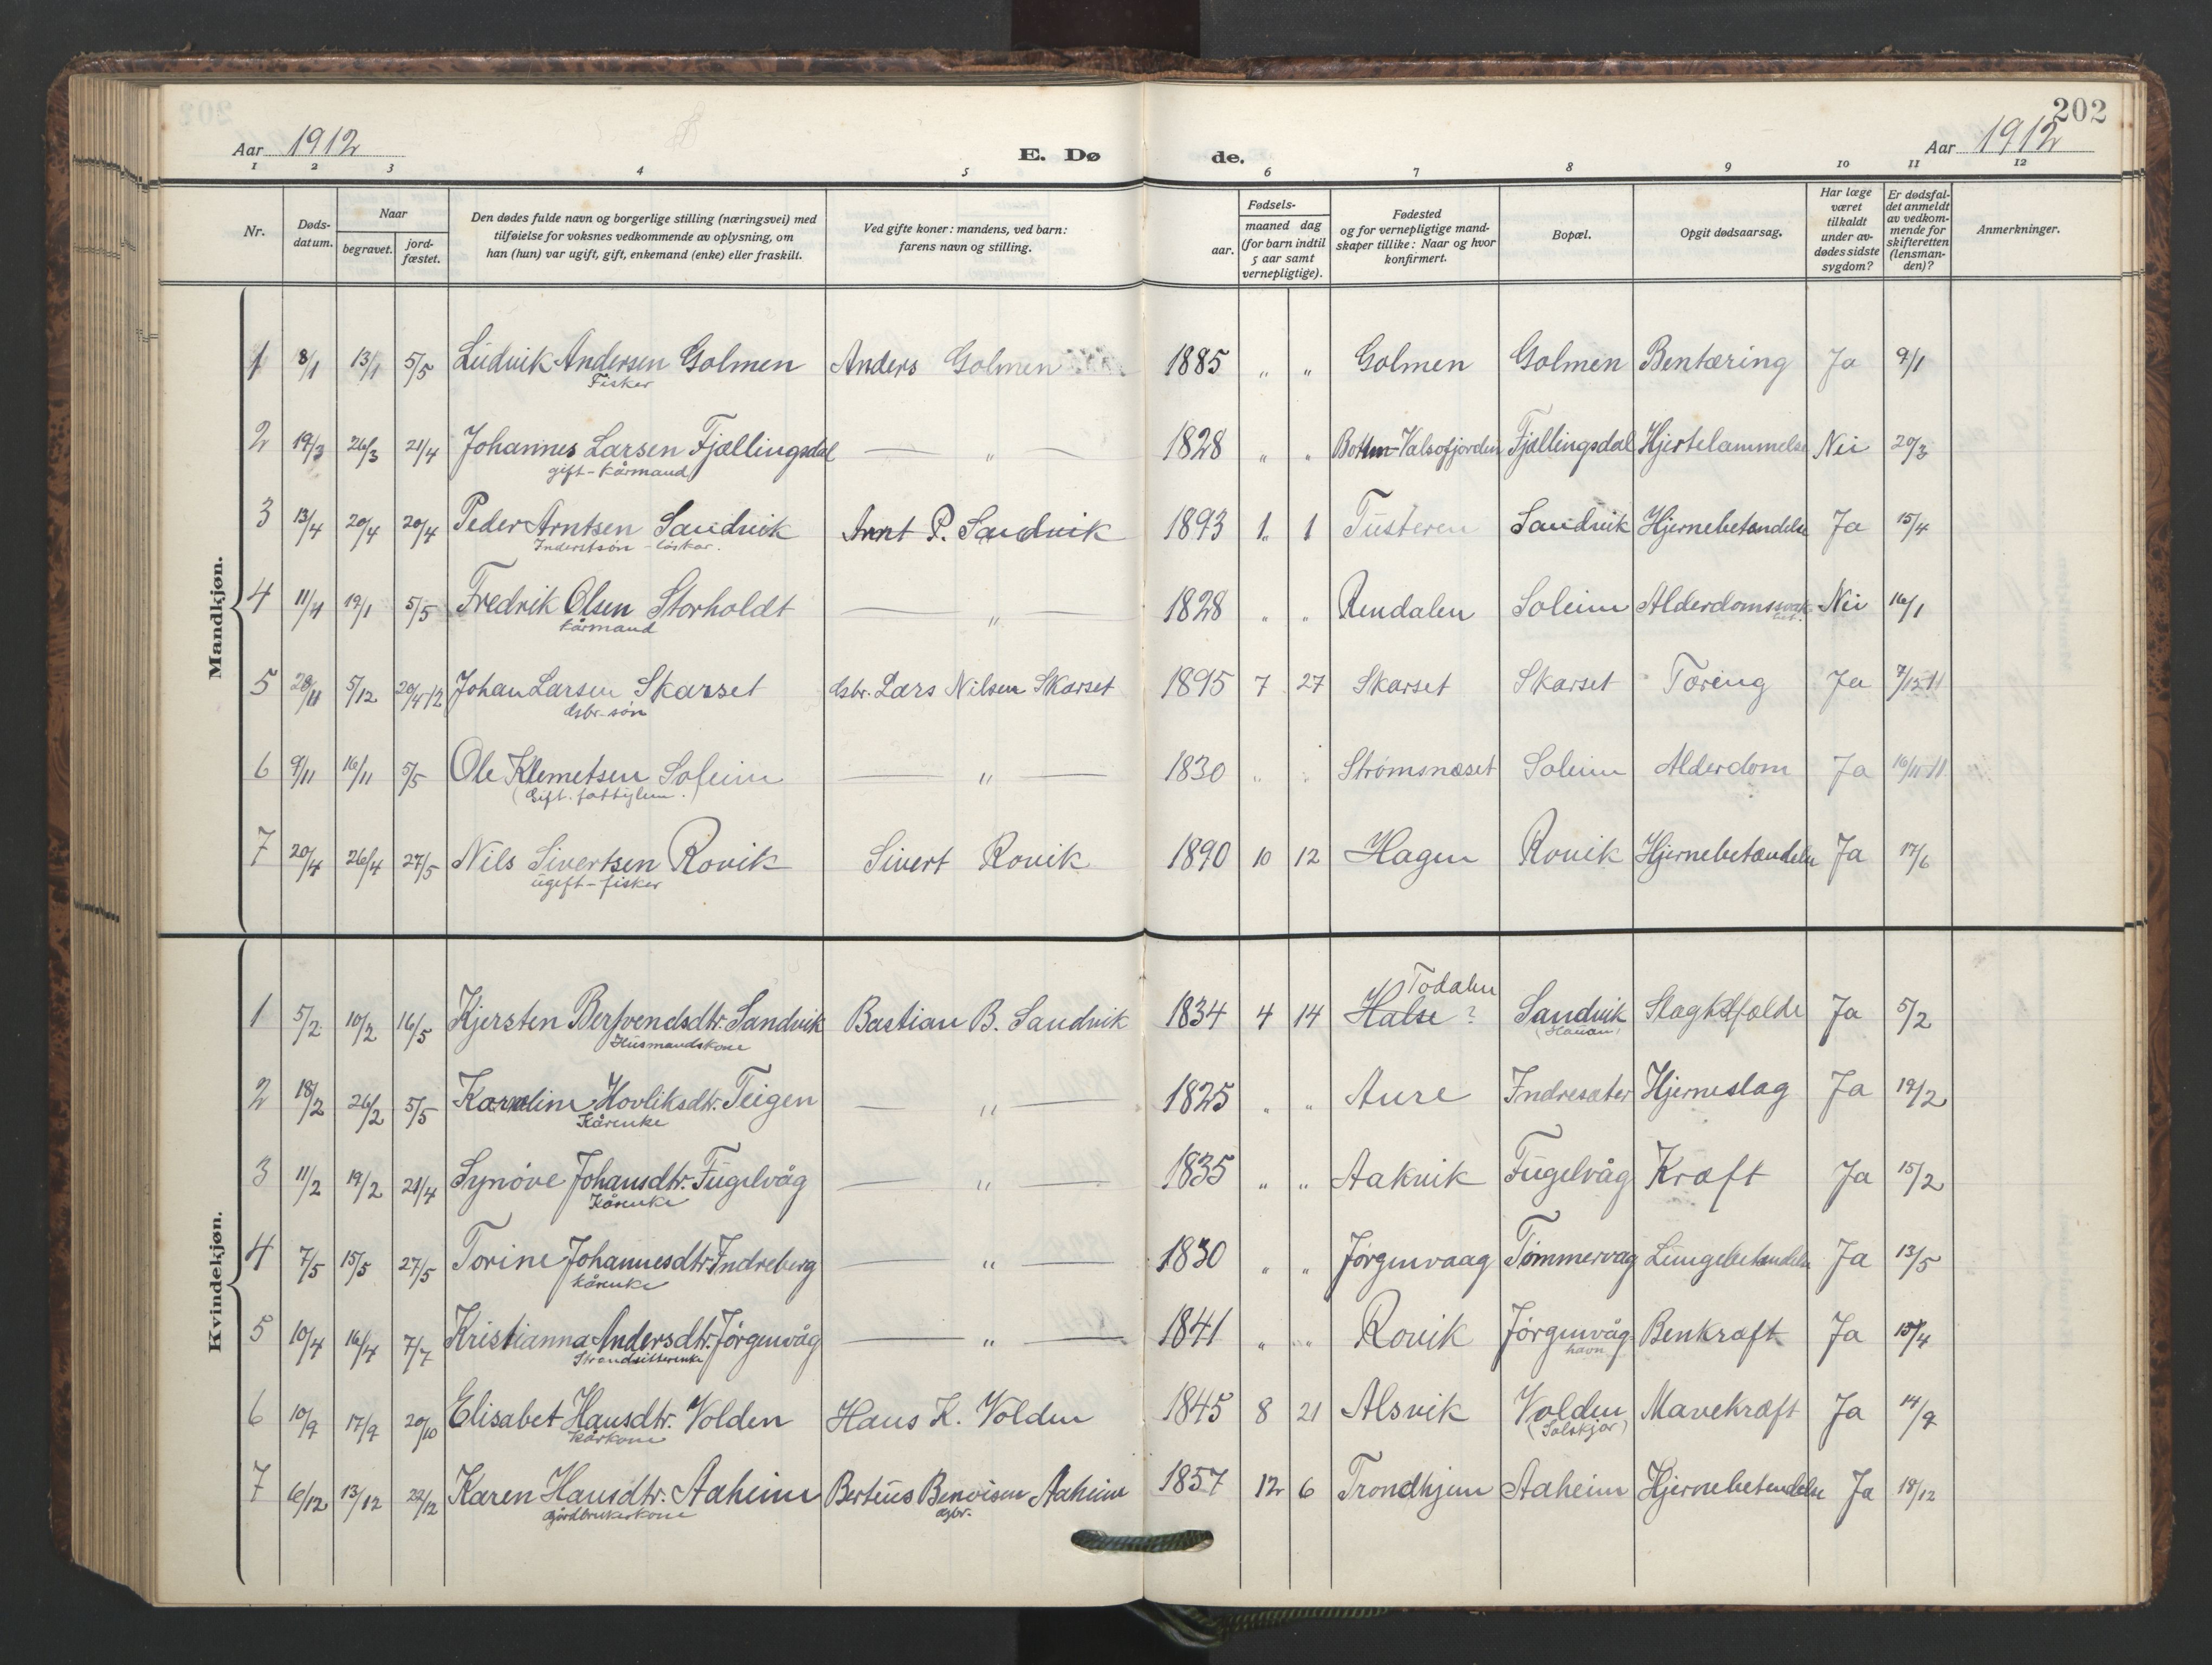 202
Aar 1912
E. Døde.
Aar 1912
1 2 3 4 5 6 7 8 9 10 11 12
Nr.
Døds-datum.
Naar
begravet.
jord-fæstet.
Den dødes fulde navn og borgerlige stilling (næringsvei) med
tilføielse for voksnes vedkommende av oplysning, om
han (hun) var ugift, gift, enkemand (enke) eller fraskilt.
Ved gifte koner: mandens, ved barn:
farens navn og stilling.
Fødsels-
aar.
maaned dag
(for barn indtil
5 aar samt
vernepligtige).
Fødested
og for vernepligtige mand-
skaper tillike: Naar og hvor
konfirmert.
Bopæl.
Opgit dødsaarsag.
Har læge
været
tilkaldt
under av-
dødes sidste
sygdom?
Er dødsfal-
det anmeldt
av vedkom-
mende for
skifteretten
(lensman-
den)?
Anmerkninger.
Mandkjøn.
1 8/1 13/1 5/5 Ludvik Andersen Golmen Anders Golmen 1885 " " Golmen Golmen Bentæring Ja 9/1
Fisker
2 19/3 26/3 21/4 Johannes Larsen Fjællingsdal — " — 1828 " " Botten-Valsøfjorden Fjællingsdal Hjertelammelse Nei 20/3
gift - kårmand
3 13/4 20/4 20/4 Peder Arntsen Sandvik Arnt P. Sandvik 1893 1 1 Tusteren Sandvik Hjernebetændelse Ja 15/4
Inderstsøn
4 11/1 19/1 5/5 Fredrik Olsen Storholdt — " 1828 " " Rendalen Soleim Alderdomssvakhet Nei 16/1
kårmand
5 28/11 5/12 20/4 12 Johan Larsen Skarset Gsbr. Lars Nilsen Skarset 1895 7 27 Skarset Skarset Tæring Ja 7/12 11
Gsbr. søn
6 9/11 16/11 5/5 Ole Klemetsen Soleim — " — 1830 " " Strømsnæset Soleim Alderdom Ja 16/11 11
(Gift. fattiglem.)
7 20/4 26/4 27/5 Nils Sivertsen Rovik Sivert Rovik 1890 10 12 Hagen Rovik Hjernebetændelse Ja 17/6
ugift - fisker
Kvindekjøn.
Todalen
1 5/2 10/2 16/5 Kjersten Bersvendsdtr. Sandvik Bastian B. Sandvik 1834 4 14 Halse ? Sandvik Slagtilfælde Ja 5/2
Husmandskone
2 18/2 26/2 5/5 Karoline Hovliksdtr. Teigen — " — 1825 " " Aure Indresæter Hjerneslag Ja 19/2
Kårenke
3 11/2 19/2 21/4 Synøve Johansdtr. Fugelvåg — " — 1835 " " Aakvik Fugelvåg Kræft Ja 15/2
Kårenke
4 7/5 15/5 27/5 Torine Johannesdtr. Indreberg — " — 1830 " " Jørgenvaag Tømmervåg Lungebetændelse Ja 13/5
kårenke
5 10/4 16/4 7/7 Kristianna Andersdtr. Jørgenvåg — " — 1841 " " Rovik Jørgenvåg Benkræft Ja 15/4
Strandsitterenke havn
6 10/9 17/9 20/10 Elisabet Hansdtr. Volden Hans K. Volden 1845 8 21 Alsvik Volden Mavekræft Ja 14/9
Kårkone (Solskjær)
7 6/12 13/12 22/12 Karen Hansdtr. Aaheim Berteus Aaheim 1857 12 6 Trondhjem Aaheim Hjernebetændelse Ja 18/12
Gårdbrukerkone Gsbr.